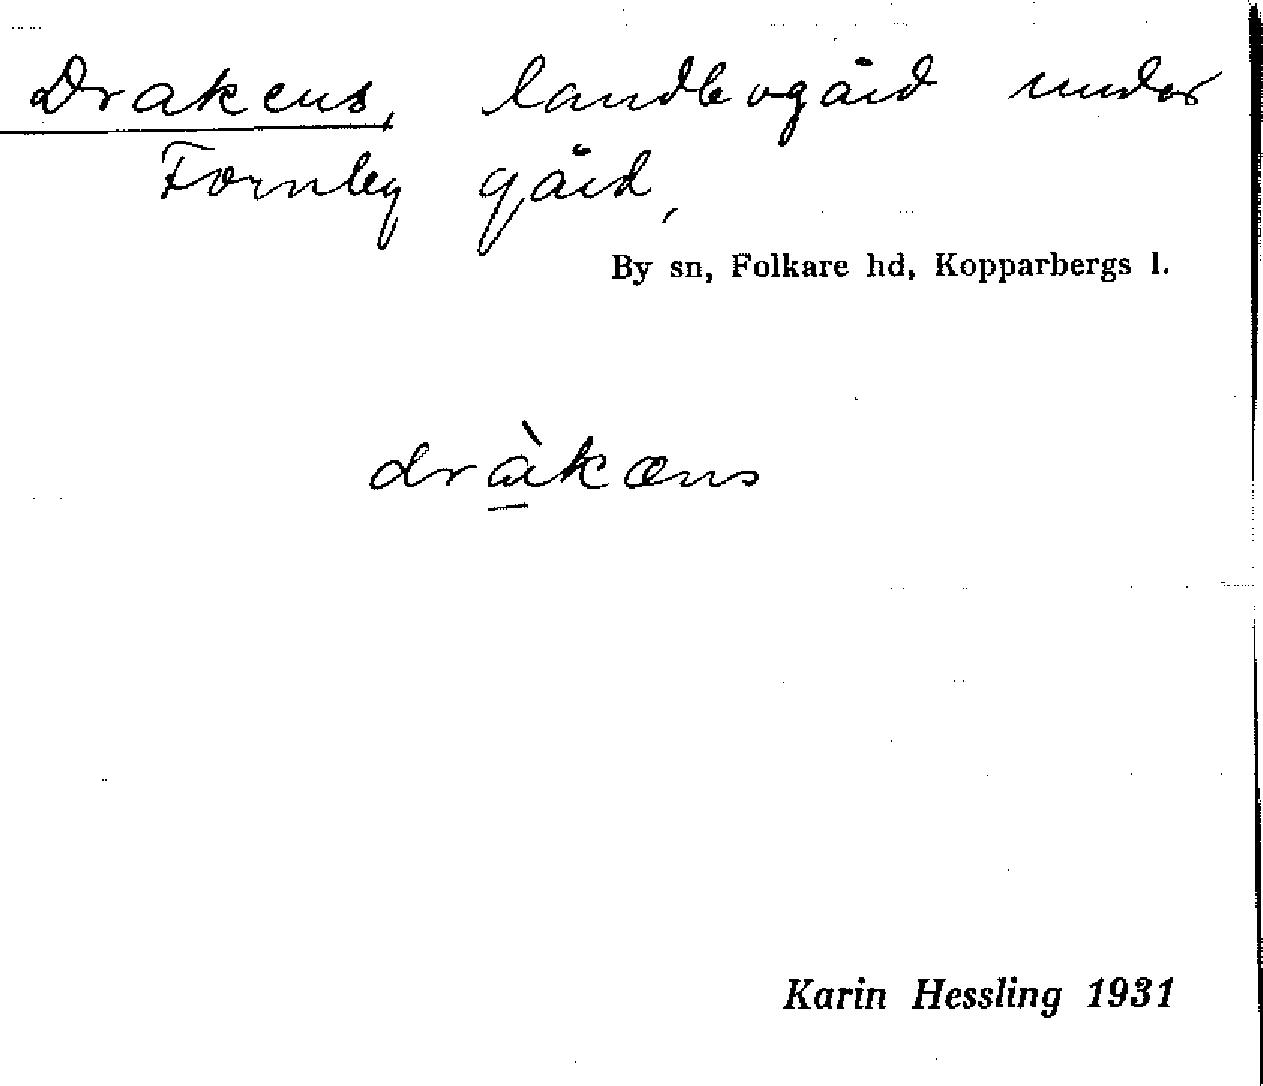 Drakens, landbogård under
Fornby gård,
By sn, Folkare hd, Kopparbergs l.
dràkæns
Karin Hessling 1931